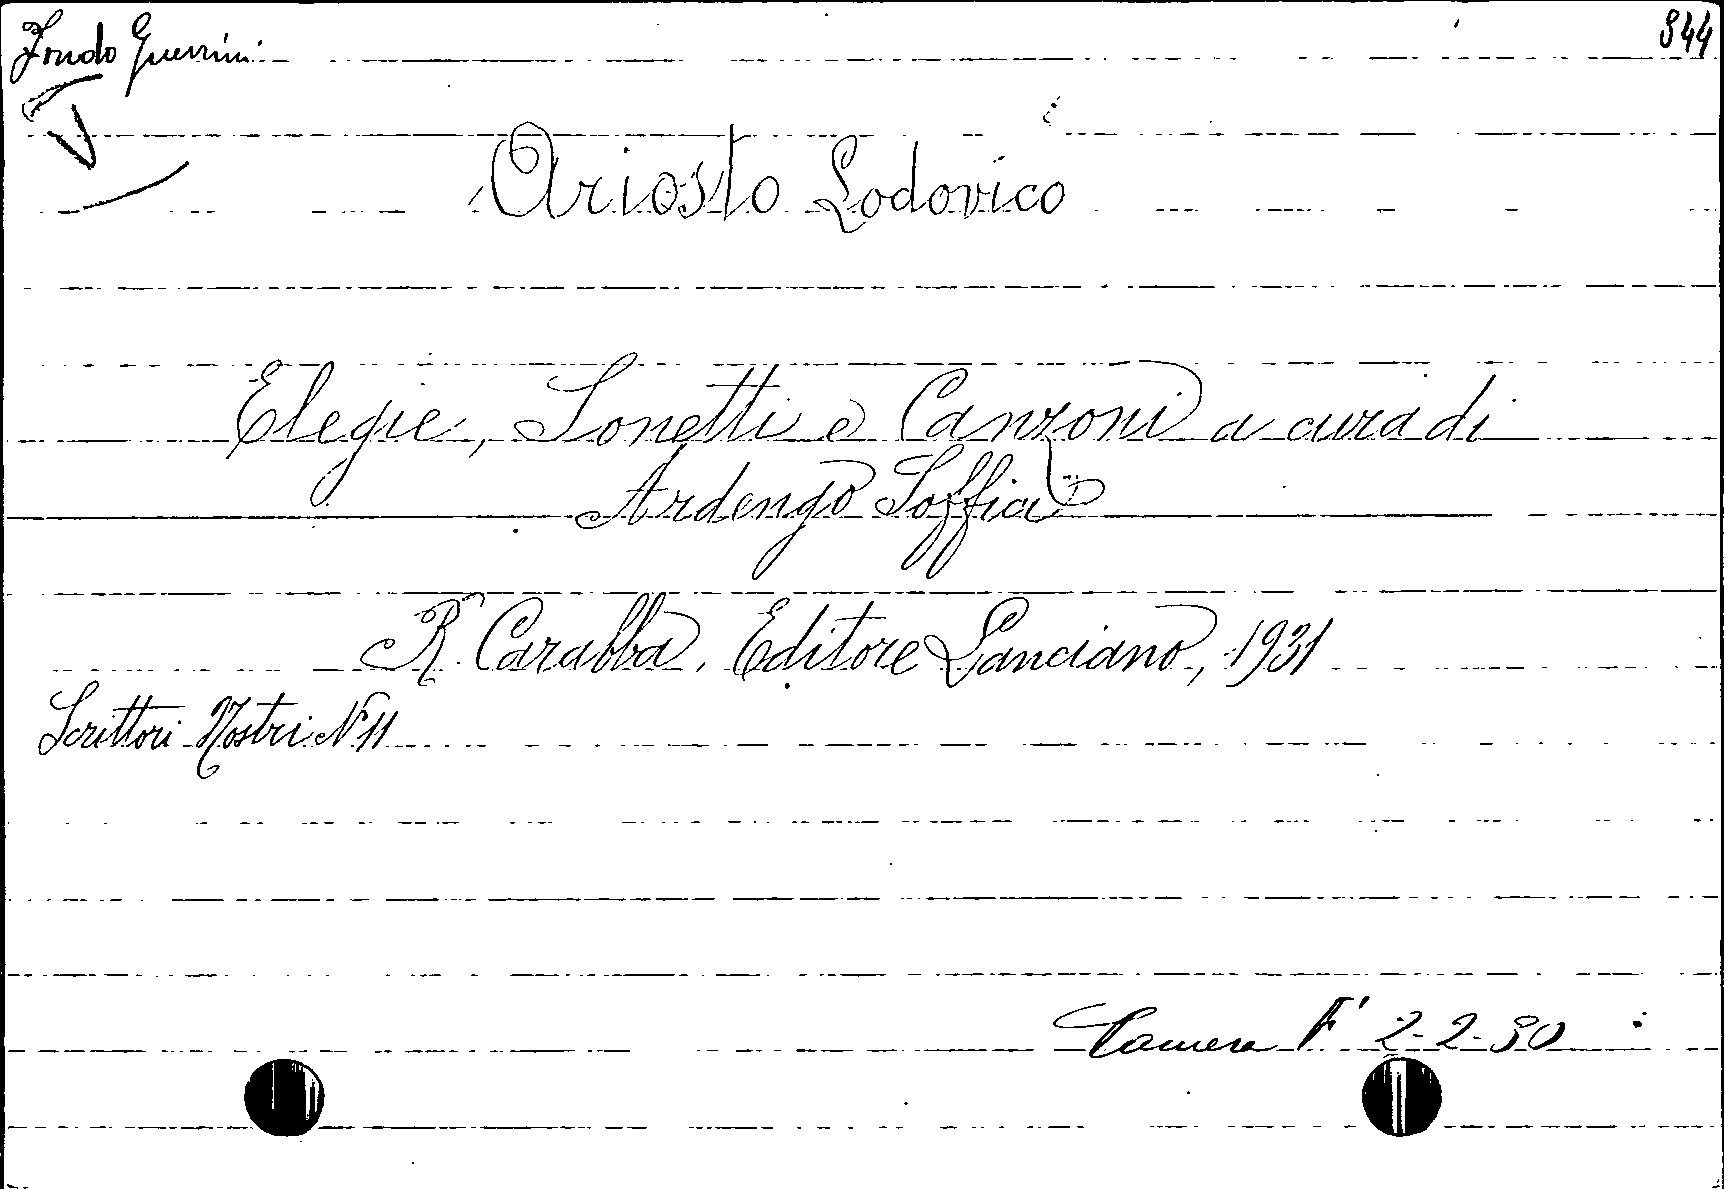 Fondo Guerrini 944
V
Ariosto Lodovico
Elegie, Sonetti e Canzoni a cura di
Ardengo Soffici
R Carabba, Editore Lanciano, 1931
Scrittori Nostri N 11
Camera F' 2-2-30